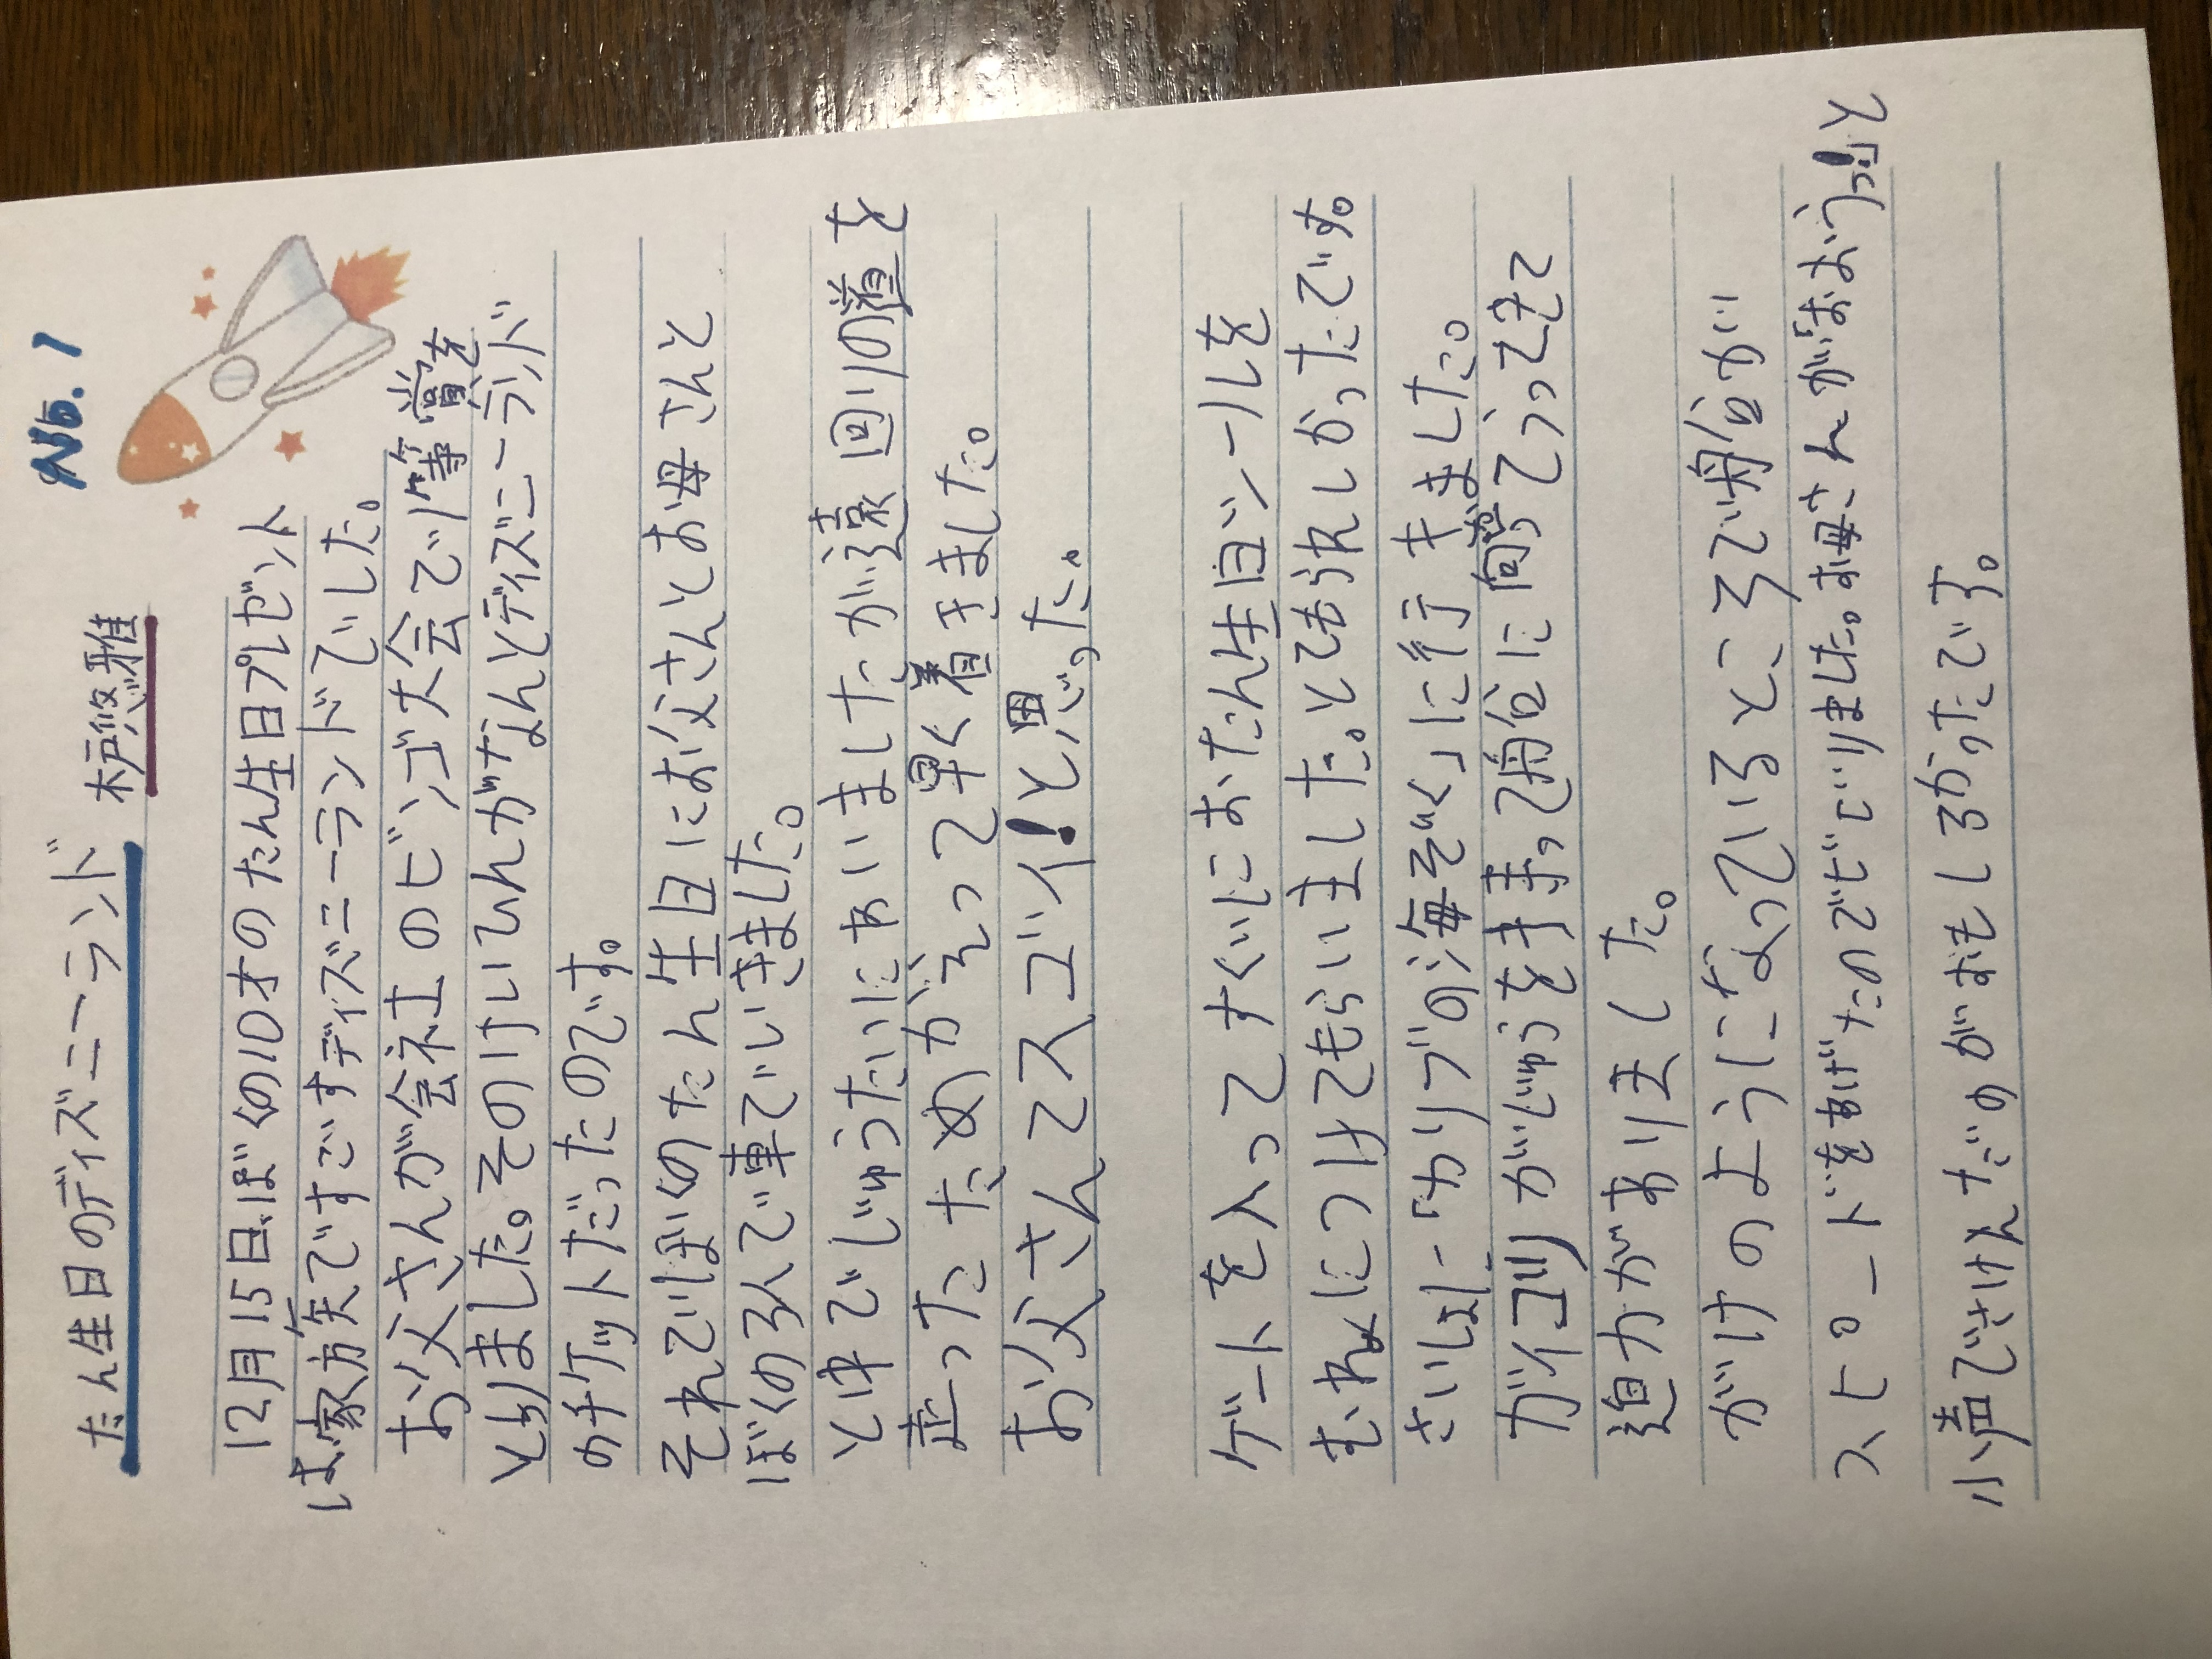 No.1
たん生日のディズニーランド 木戸悠雅
12月15日、ぼくの10才のたん生日プレゼント
は、家方矢ですごすディズニーランドでした。
お父さんが会社のビンゴ大会で1等賞を
とりました。そのけいひんがなんとディズニーランド
のチケットだったのです。
それでぼくのたん生日にお父さんとお母さんと
ぼくの3人で車でいきました。
と中でじゅうたいにあいましたが、遠回りの道を
走ったためかえって早く着きました。
お父さんてスゴイ!と思った。
ゲートを入ってすぐにおたん生日シールを
むねにつけてもらいました。とてもうれしかったです。
さいしょに「カリブの海ぞく」に行きました。
ガイコツがじゅうを持って船に向ってうってきて
迫力がありました。
がけのようになっているところで船が
スピードをあげたのでビビりました。お母さんが「おおうっ!」と
小声でさけんだのがおもしろかったです。